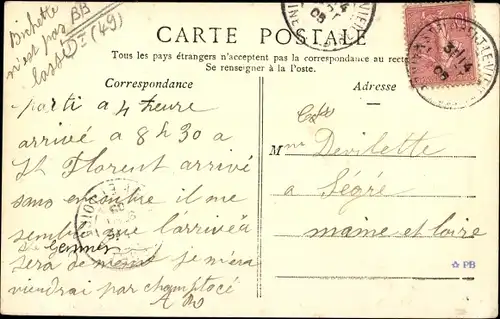 Bichette
n'est pas BB
lassé Dr (49)
CARTE POSTALE
Tous les pays étrangers n'acceptent pas la correspondance au recto
Se renseigner à la Poste.
Correspondance
Adresse
parti a 4 heure
arrivé a 8 h 30 a
St Florent arrivé
sans encombre il me
semble que l'arrivéa
de Gennes
sera de meme je m'en
viendrai par champtocé
Mme Devilette
a Ségré
maine et loire
PB